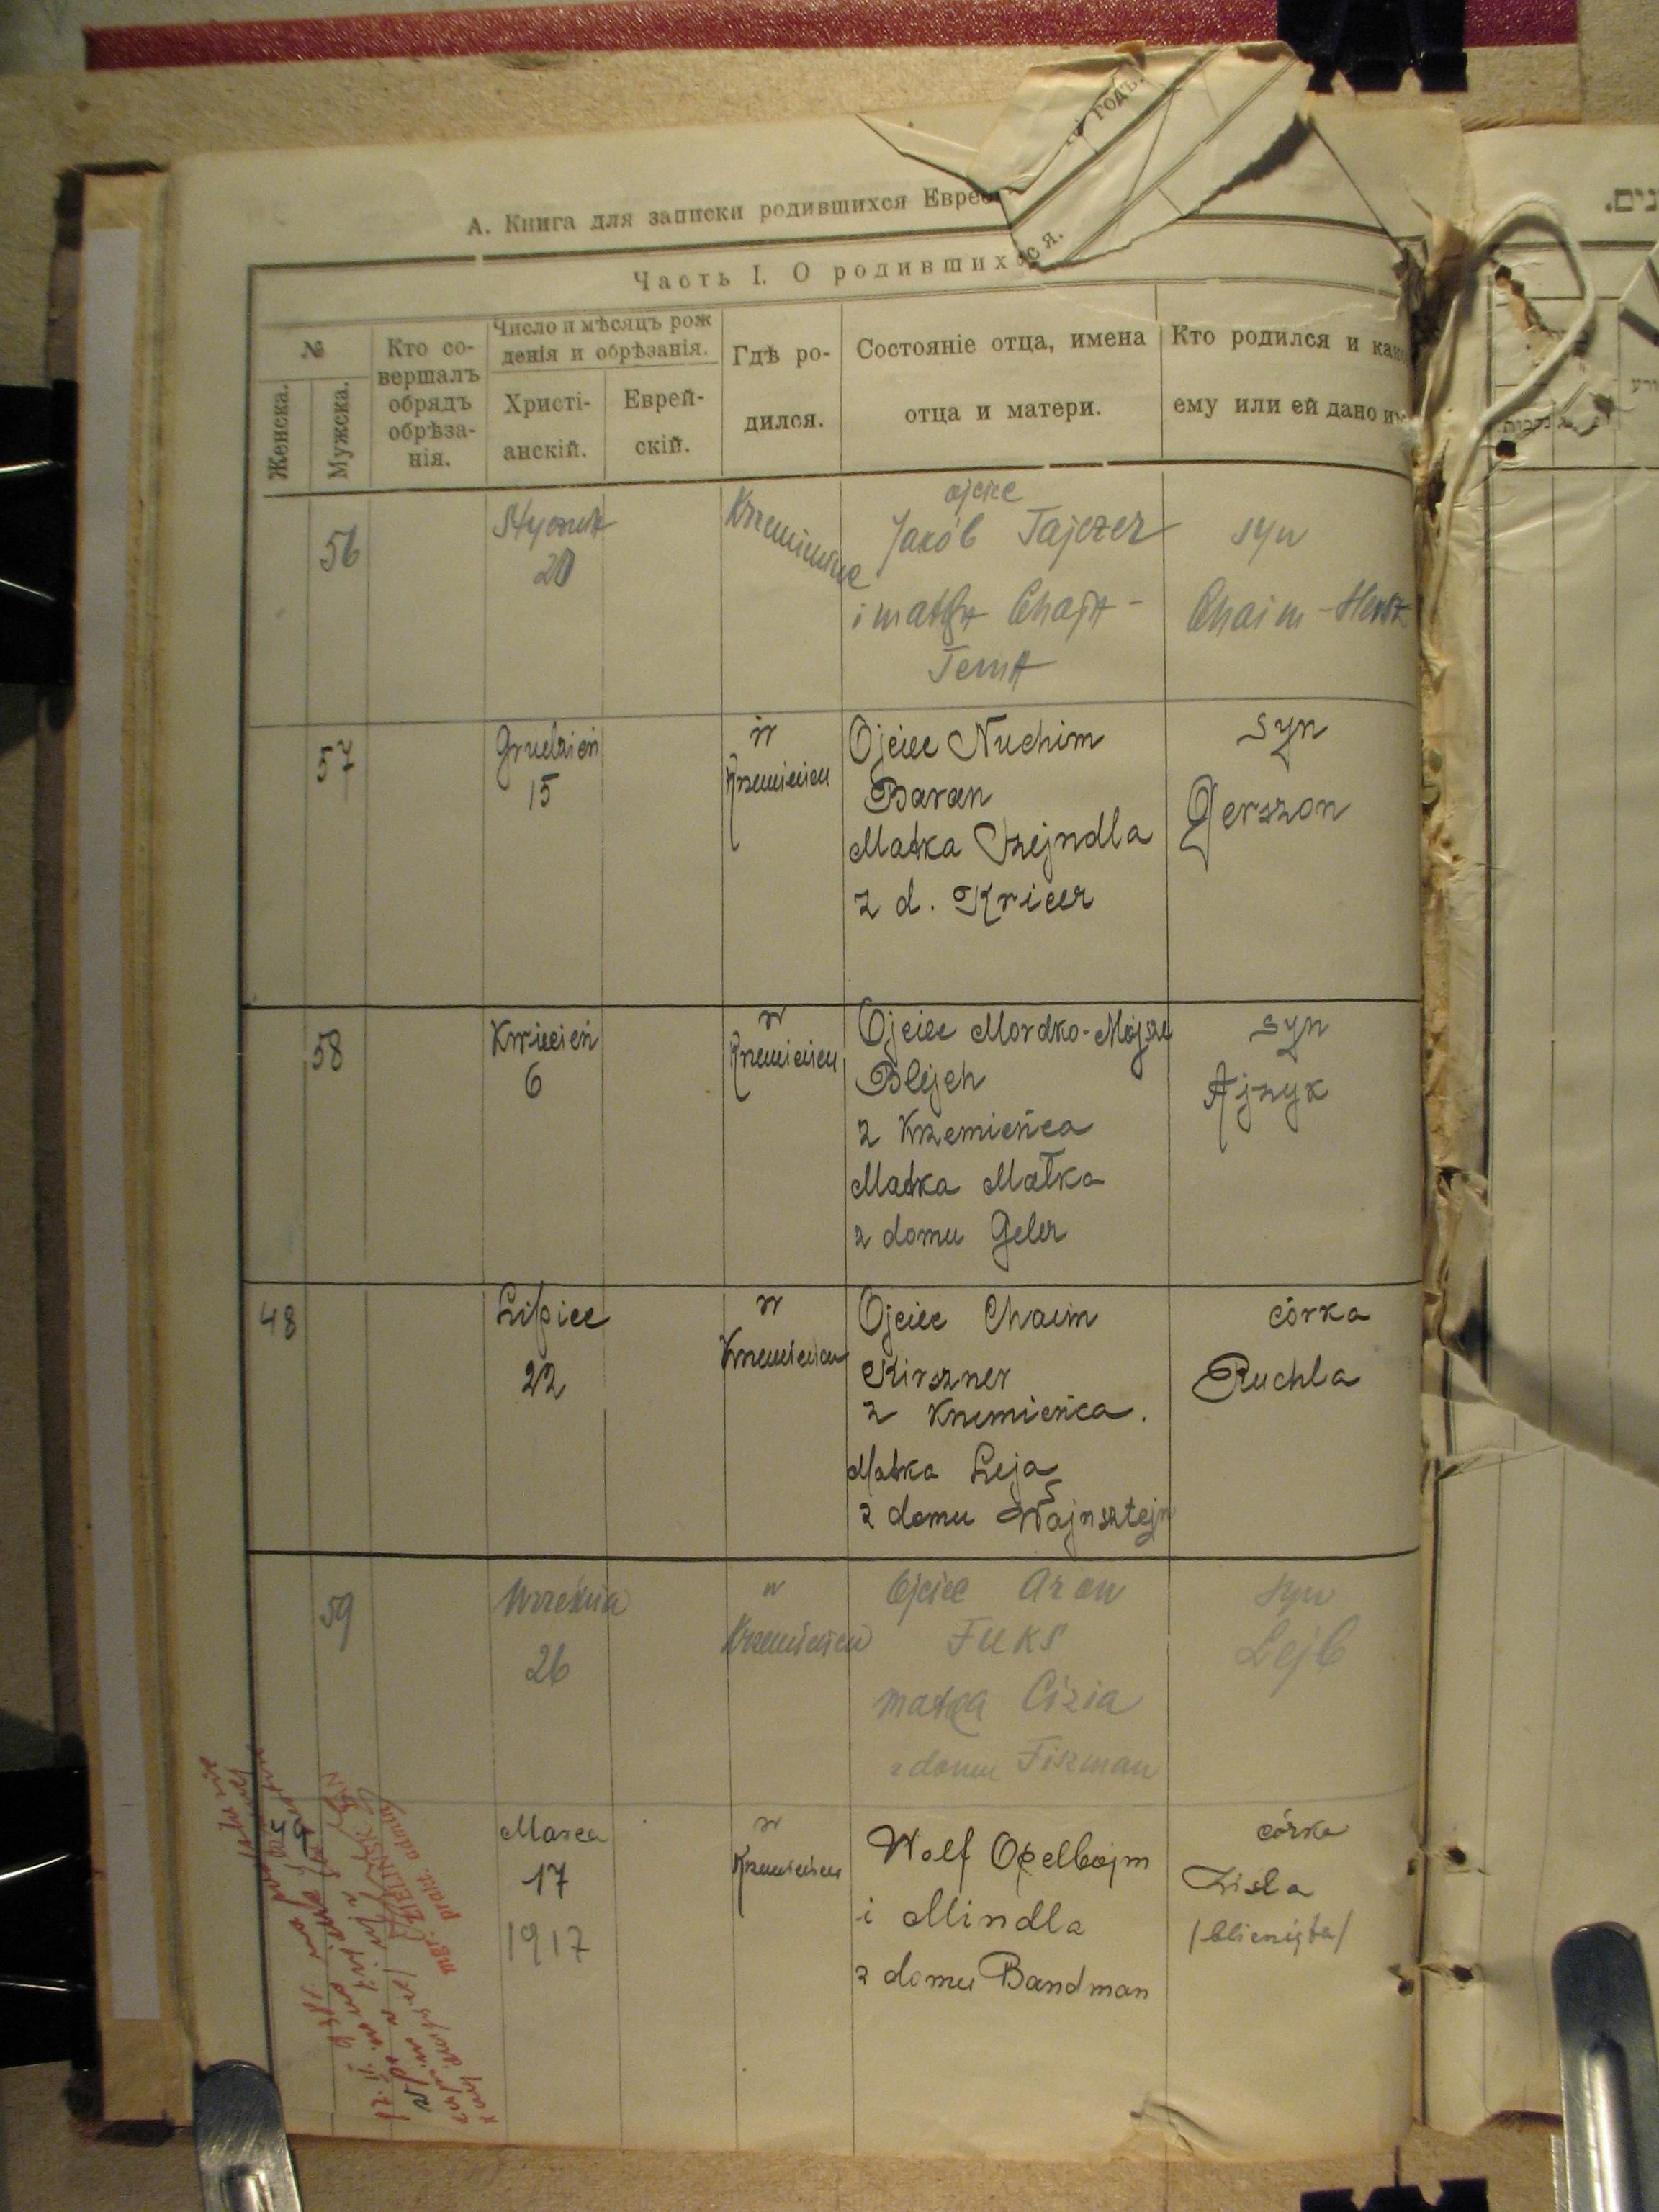 годъ.
А. Книга для записки родившихся Евре
Часть I. О родившихся.
№
Женска.
Мужска.
Кто со-
вершалъ
обрядъ
обрѣза-
нія.
Число и мѣсяцъ рож
денія и обрѣзанія.
Христі-
анскій.
Еврей-
скій.
Гдѣ ро-
дился.
Состояніе отца, имена
отца и матери.
Кто родился и как
ему или ей дано им
56
20
ojciec
Jakób Tajczer
i matka Chaja -
Tema
syn
Chaim - Hersz
57
Grudzień
15
w
Krzemieńcu
Ojciec Nuchim
Baran
Matka Szejndla
z d. Kricer
syn
Gerszon
58
Kwiecień
6
w
Krzemieńcu
Ojciec Mordko-Mojsze
Blejch
z Krzemieńca
Matka Małka
z domu Geler
syn
Ajzyk
48
Lipiec
22
w
Krzemieńcu
Ojciec Chaim
Kirszner
z Krzemieńca.
Matka Leja
z domu Wajnsztejn
córka
Ruchla
59
Września
26
w
Krzemieńcu
Ojciec Aron
Fuks
matka Cizia
z domu Fiszman
syn
Lejb
49
Marca
17
1917
w
Krzemieńcu
Wolf Opelbojm
i Mindla
z domu Bandman
córka
Zisla
/bliźnięta/
mgr. ZIELIŃSKI JAN
prakt. admin.
נים.